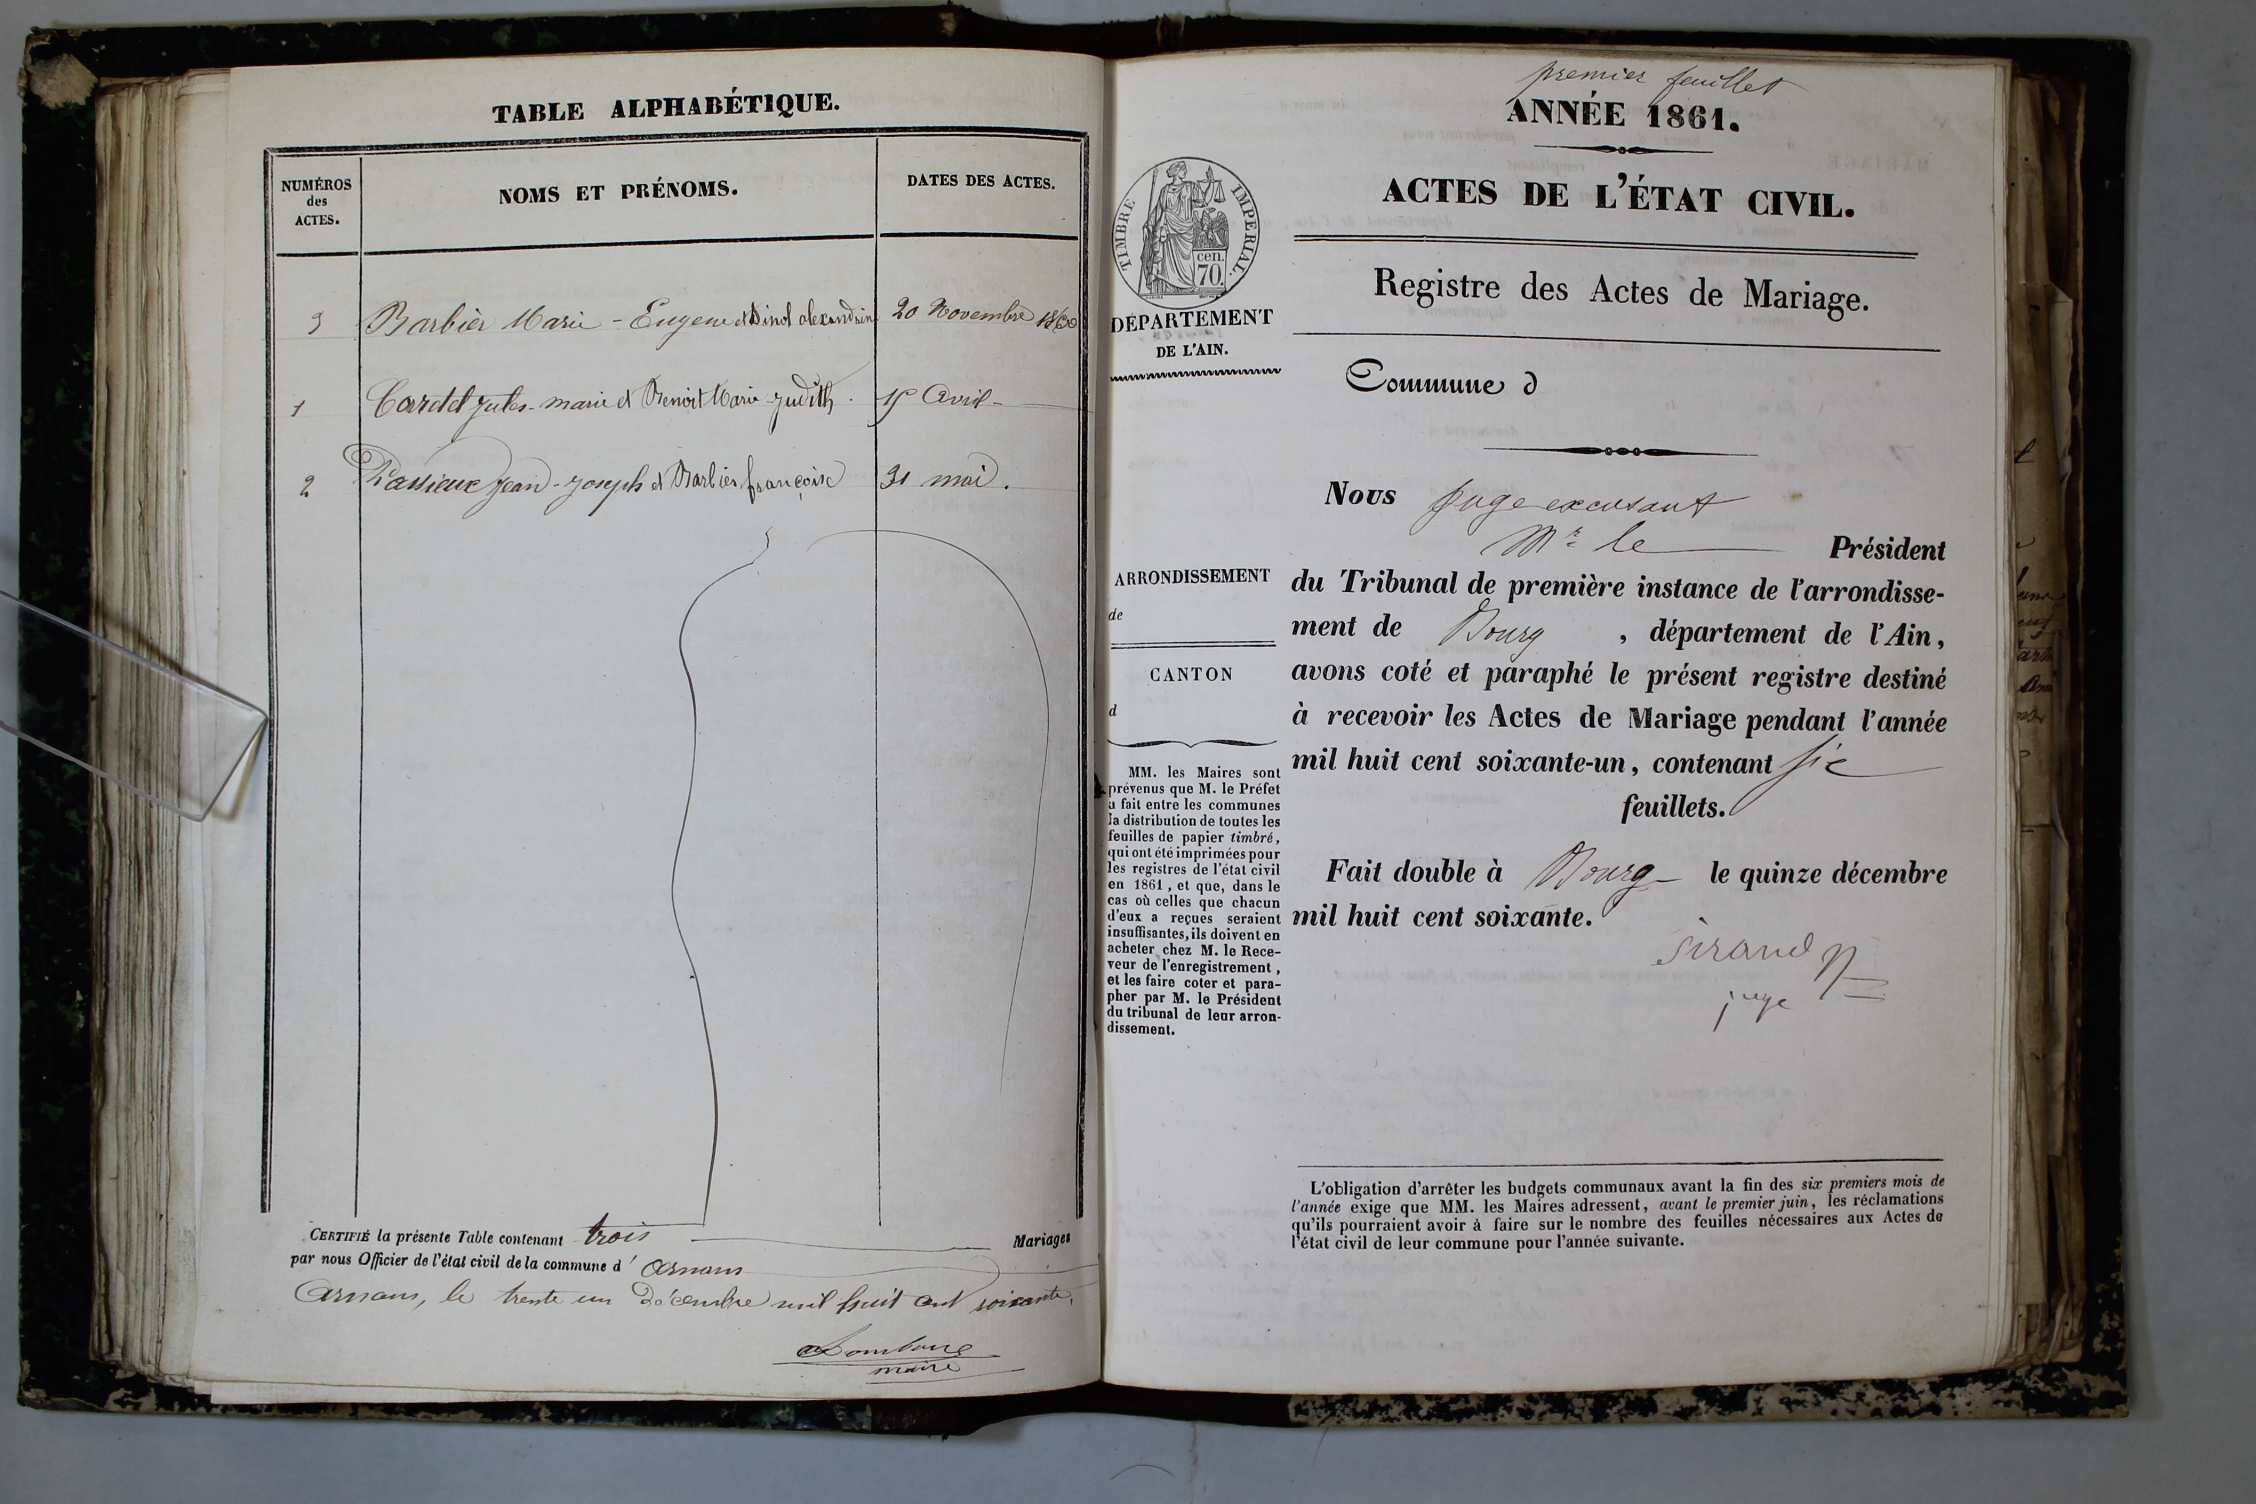 TABLE ALPHABÉTIQUE.
NUMÉROS
des
ACTES.
NOMS ET PRÉNOMS.
DATES DES ACTES.
3 Barbier Marie - Eugene et alexandrine 20 Novembre 1860
1 jules-marie et Benoit Marie-judith. Avril
2 jean-joseph et Barbier françoise 31 mai.
CERTIFIÉ la présente Table contenant trois Mariages
par nous Officier de l'état civil de la commune d' Arnans
Arnans, le trente un Décembre mil huit cent soixante.
maire
premier feuillet
ANNÉE 1861.
ACTES DE L'ÉTAT CIVIL.
Registre des Actes de Mariage.
TIMBRE IMPÉRIAL.
cen.
70.
DÉPARTEMENT
DE L'AIN.
Commune d
Nous juge excusant
Mr le Président
du Tribunal de première instance de l'arrondisse-
ment de Bourg , département de l'Ain,
avons coté et paraphé le présent registre destiné
à recevoir les Actes de Mariage pendant l'année
mil huit cent soixante-un, contenant six
feuillets.
Fait double à Bourg le quinze décembre
mil huit cent soixante.
Sirand
juge
ARRONDISSEMENT
de
CANTON
d
MM. les Maires sont
prévenus que M. le Préfet
a fait entre les communes
la distribution de toutes les
feuilles de papier timbré,
qui ont été imprimées pour
les registres de l'état civil
en 1861, et que, dans le
cas où celles que chacun
d'eux a reçues seraient
insuffisantes, ils doivent en
acheter chez M. le Rece-
veur de l'enregistrement,
et les faire coter et para-
pher par M. le Président
du tribunal de leur arron-
dissement.
L'obligation d'arrêter les budgets communaux avant la fin des six premiers mois de
l'année exige que MM. les Maires adressent, avant le premier juin, les réclamations
qu'ils pourraient avoir à faire sur le nombre des feuilles nécessaires aux Actes de
l'état civil de leur commune pour l'année suivante.